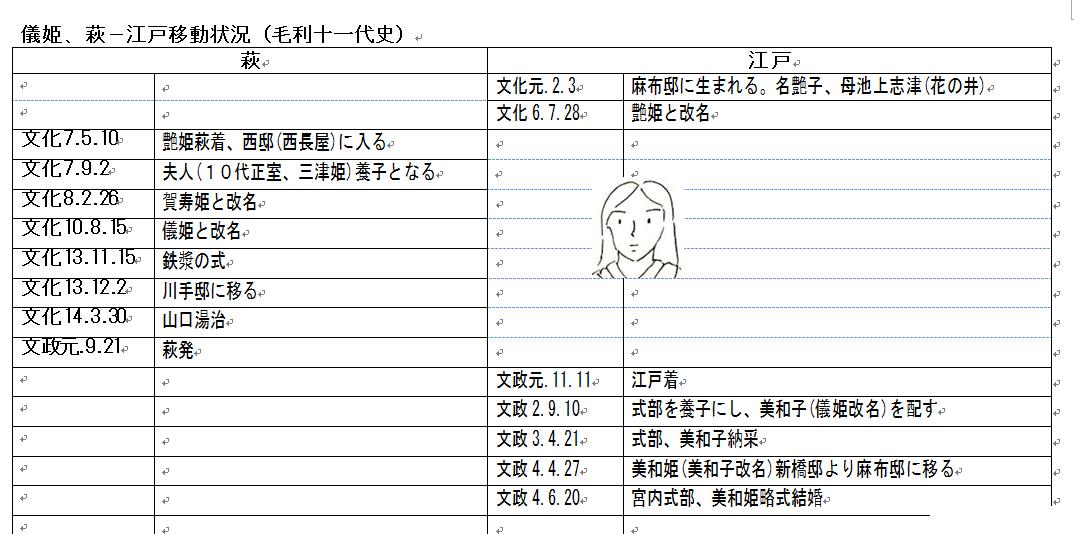 儀姫、萩－江戸移動状況（毛利十一代史）
萩 江戸
文化元.2.3 麻布邸に生まれる。名艶子、母池上志津(花の井)
文化6.7.28 艶姫と改名
文化7.5.10 艶姫萩着、西邸(西長屋)に入る
文化7.9.2 夫人(１０代正室、三津姫)養子となる
文化8.2.26 賀寿姫と改名
文化10.8.15 儀姫と改名
文化13.11.15 鉄漿の式
文化13.12.2 川手邸に移る
文化14.3.30 山口湯治
文政元.9.21 萩発
文政元.11.11 江戸着
文政2.9.10 式部を養子にし、美和子(儀姫改名)を配す
文政3.4.21 式部、美和子納采
文政4.4.27 美和姫(美和子改名)新橋邸より麻布邸に移る
文政4.6.20 宮内式部、美和姫略式結婚